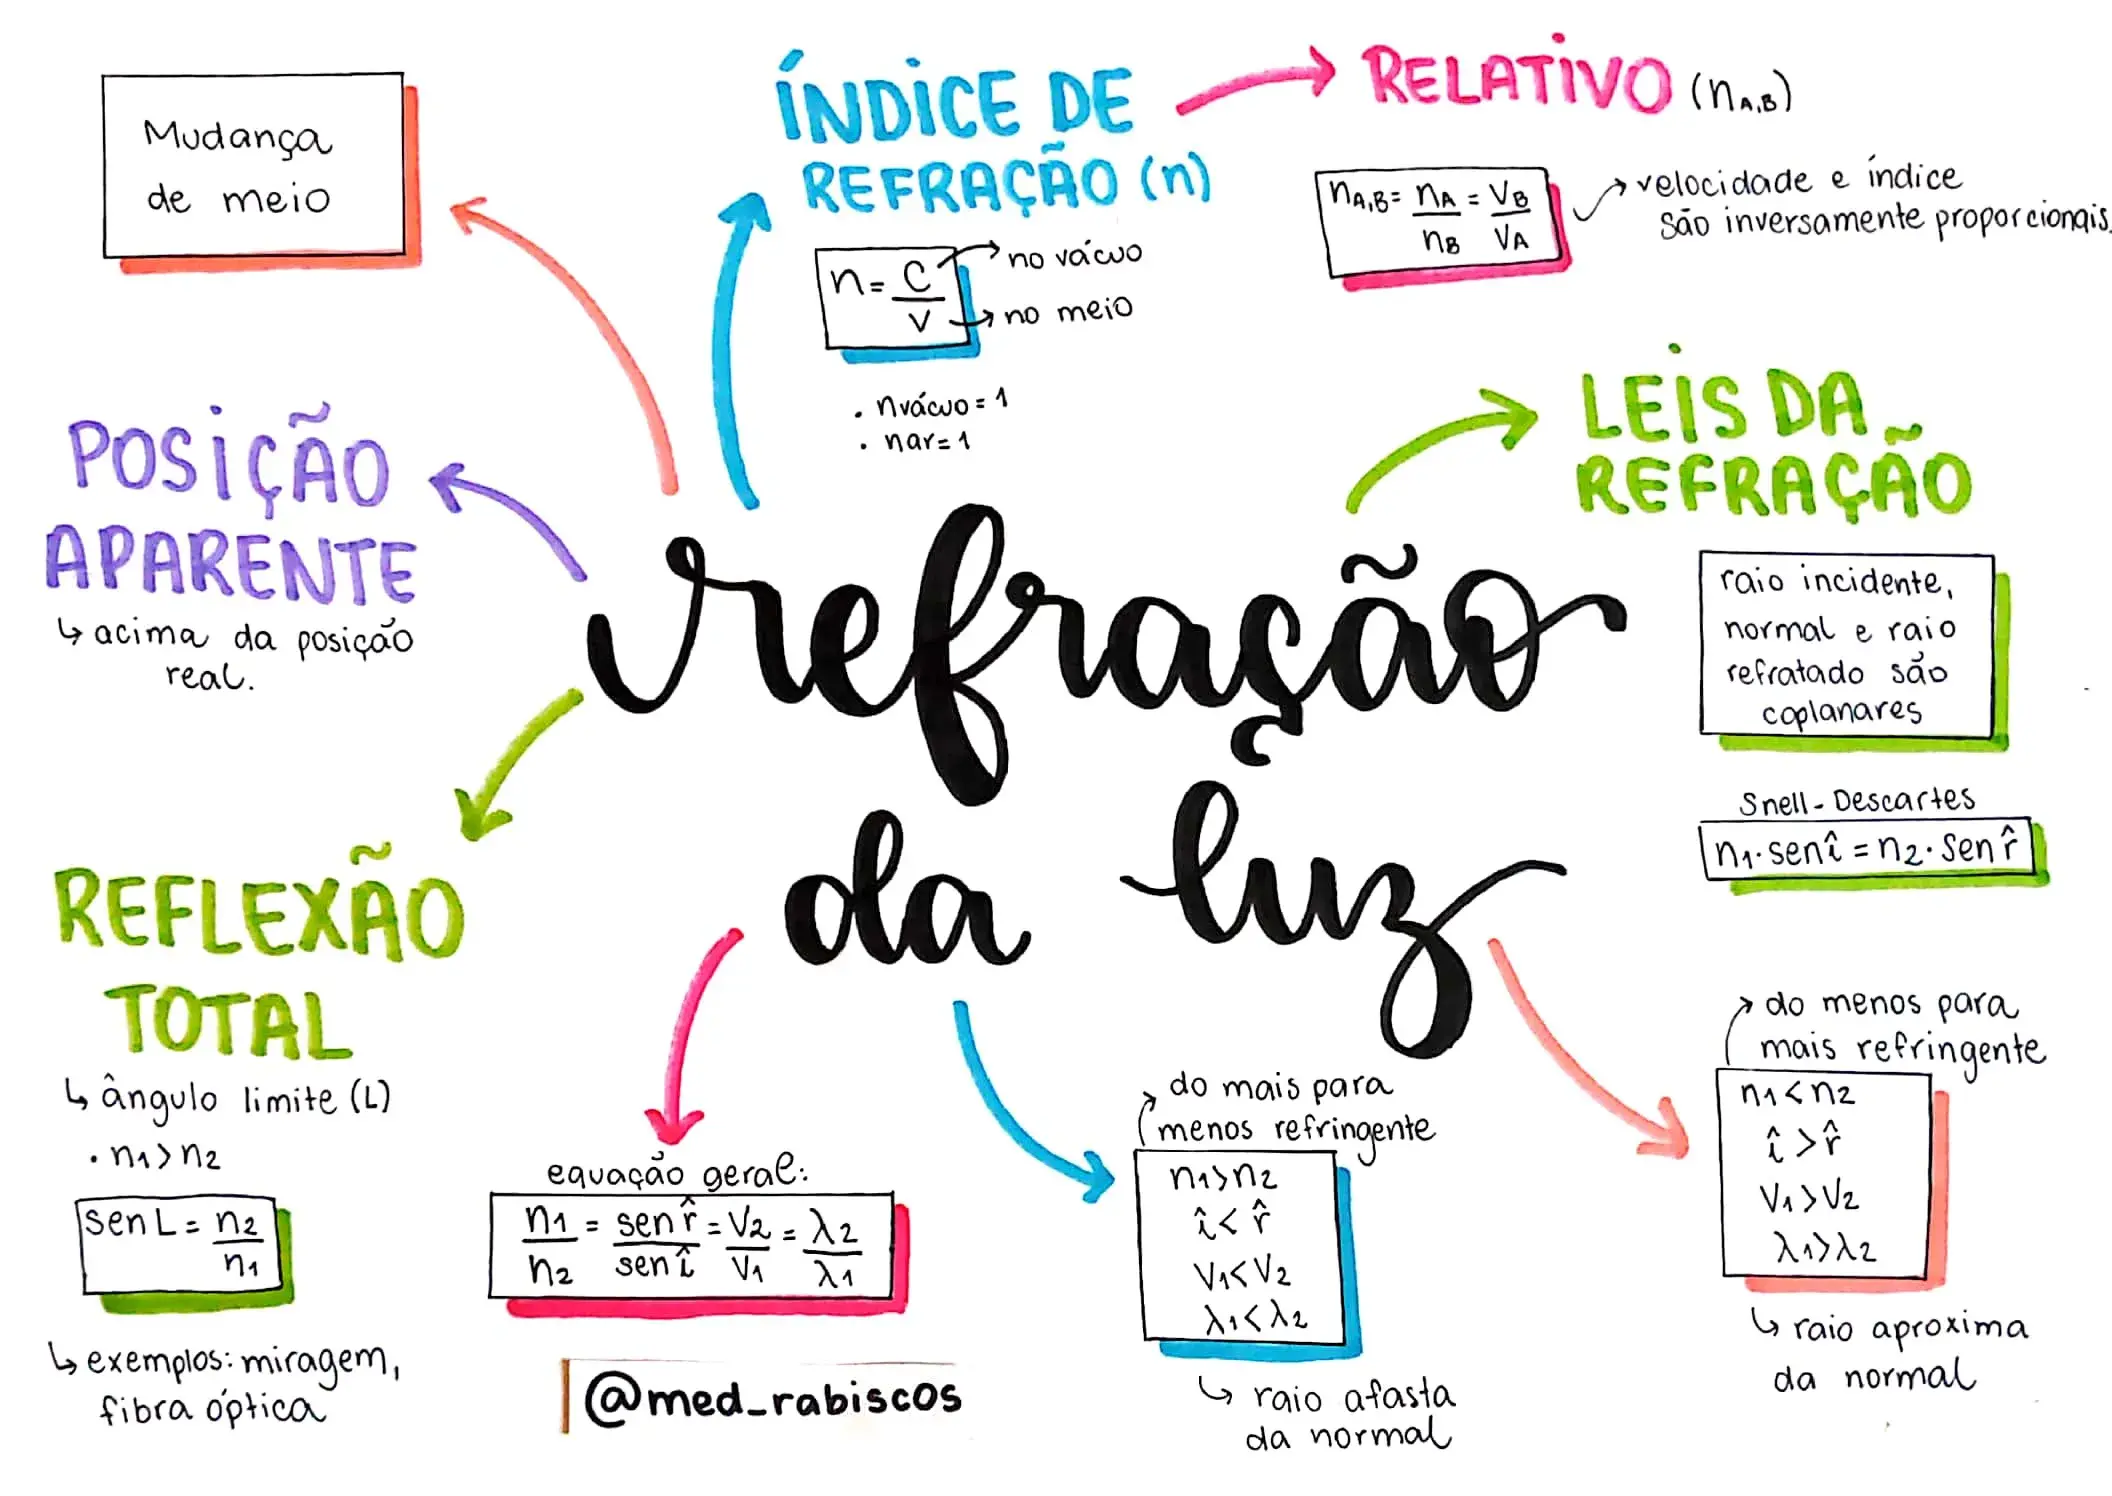 Mudança
de meio
ÍNDICE DE
REFRAÇÃO (n)
n = C/V
no vácuo
no meio
. nvácuo = 1
. nar = 1
RELATIVO (nA,B)
nA,B = nA/nB = VB/VA
velocidade e índice
são inversamente proporcionais.
LEIS DA
REFRAÇÃO
raio incidente,
normal e raio
refratado são
coplanares
Snell-Descartes
n1.sen î = n2.sen r̂
POSIÇÃO
APARENTE
↳ acima da posição
real.
refração
da luz
REFLEXÃO
TOTAL
↳ ângulo limite (L)
. n1 > n2
sen L = n2/n1
↳ exemplos: miragem,
fibra óptica
equação geral:
n1/n2 = sen r̂/sen î = V2/V1 = λ2/λ1
@med_rabiscos
do mais para
menos refringente
n1 > n2
î < r̂
V1 < V2
λ1 < λ2
↳ raio afasta
da normal
do menos para
mais refringente
n1 < n2
î > r̂
V1 > V2
λ1 > λ2
↳ raio aproxima
da normal